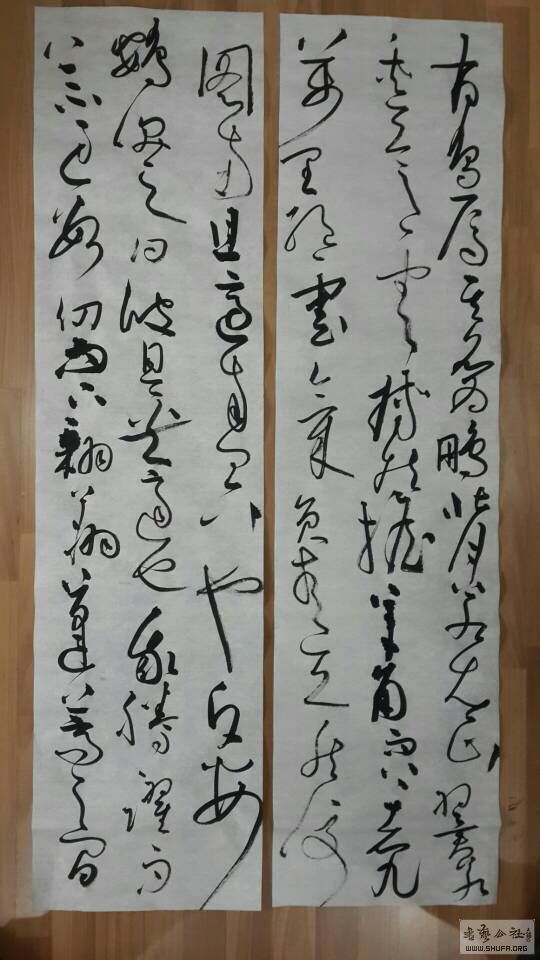 有鳥焉其名為鵬背若太山翼若
垂天之雲摶扶搖羊角而上者九
萬里絕雲氣負青天然後
圖南且適南冥也斥
鴳笑之曰彼且奚適也我騰躍而
上不過數仞而下翱翔蓬蒿之間
书艺公社
WWW.SHUFA.ORG